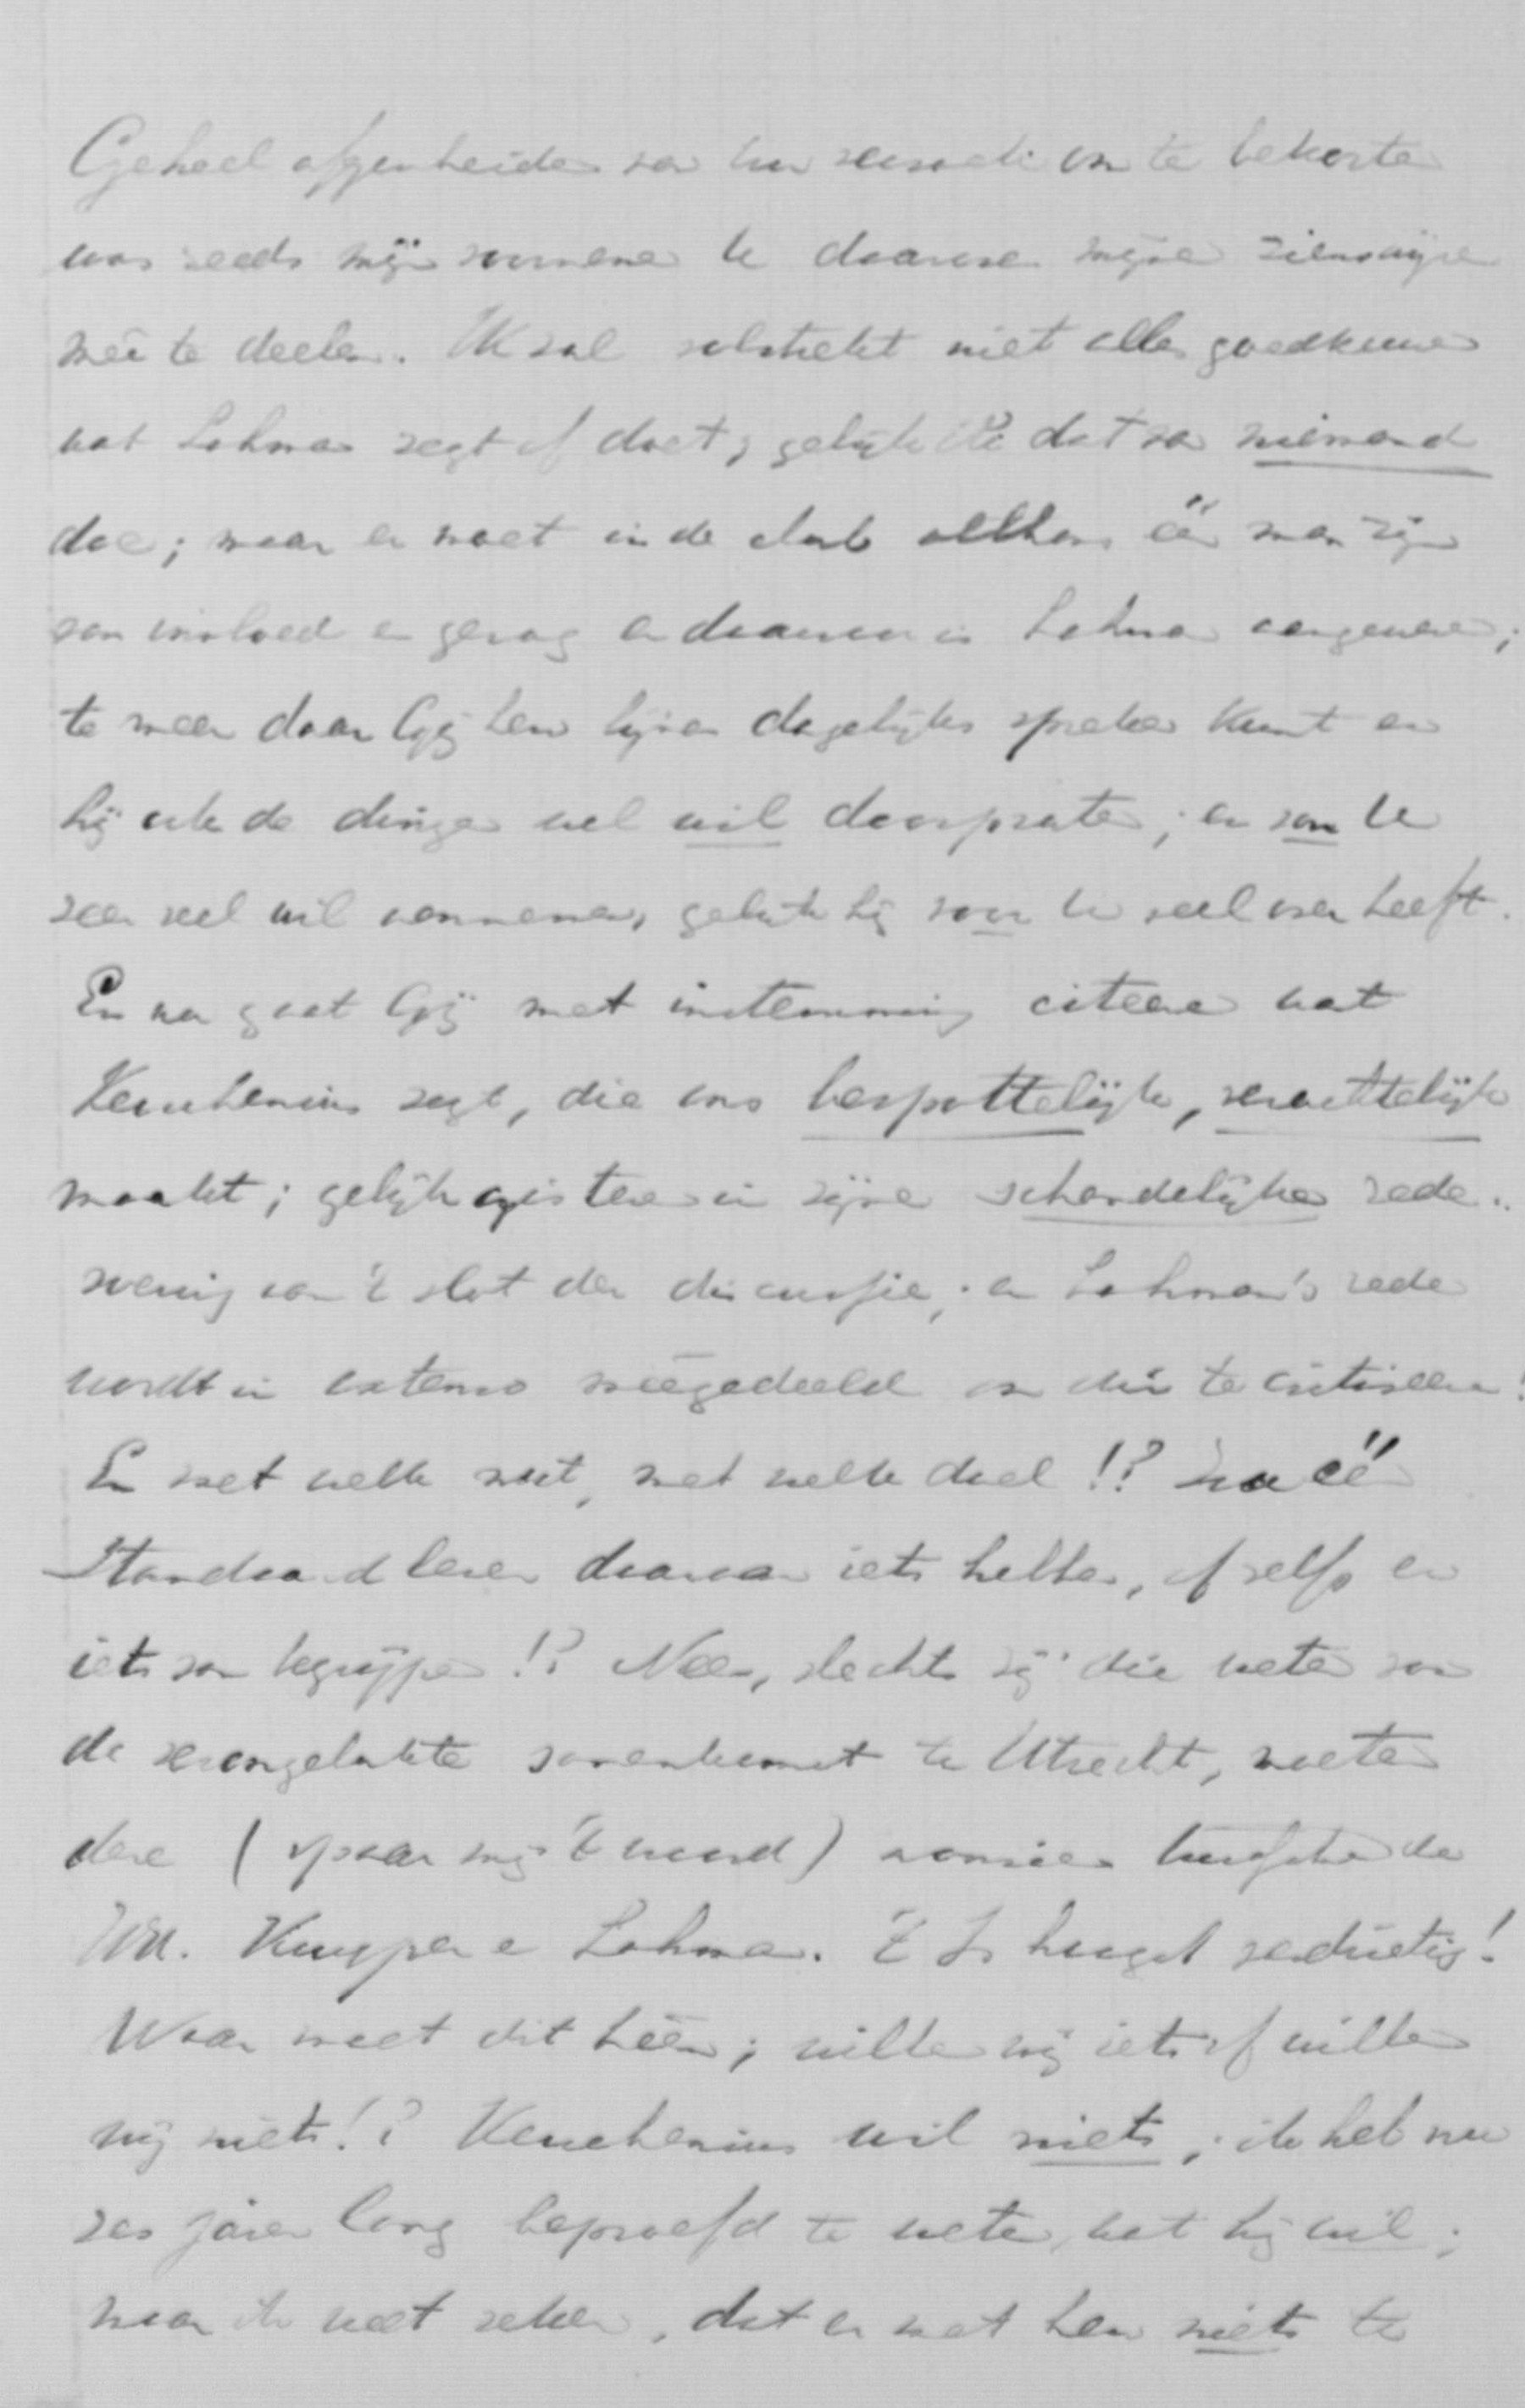 Geheel afgescheiden van uw verzoek om te bekorten
was reeds mijn voornemen U daarover mijne zienswijze
mêe te deelen. Ik zal volstrekt niet alles goedkeuren
wat Lohman zegt of doet, gelijk ik dat van niemand
doe; maar er moet in de club althans één man zijn
van invloed en gezag en daarvoor is Lohman aangewezen;
te meer daar Gij hem bijna dagelijks spreken kunt en
hij ook de dingen wel wil doorpraten; en van U
zeer veel wil aannemen, gelijk hij voor U veel over heeft.
En nu gaat Gij met instemming citeeren wat
Keuchenius zegt, die ons bespottelijk, verachtelijk
maakt; gelijk gisteren in zijne schandelijke rede..
weinig van 't slot der discussie; en Lohman's rede
wordt in extenso meêgedeeld om die te critiseeren!
En met welke nut, met welk doel!? Zou één
Standaardlezer daaraan iets hebben, of zelfs er
iets van begrijpen!? Neen, slechts zij die weten van
de verongelukte samenkomst te Utrecht, weten
deze (spaar mij 't woord) tusschen de
HH. Kuyper en Lohman. 't Is hoogst verdrietig!
Waar moet dit hêen; willen wij iets of willen
wij niets!? Keuchenius wil niets; ik heb nu
zes jaren lang beproefd te weten, wat hij wil;
maar ik weet zeker, dat er met hem niets te